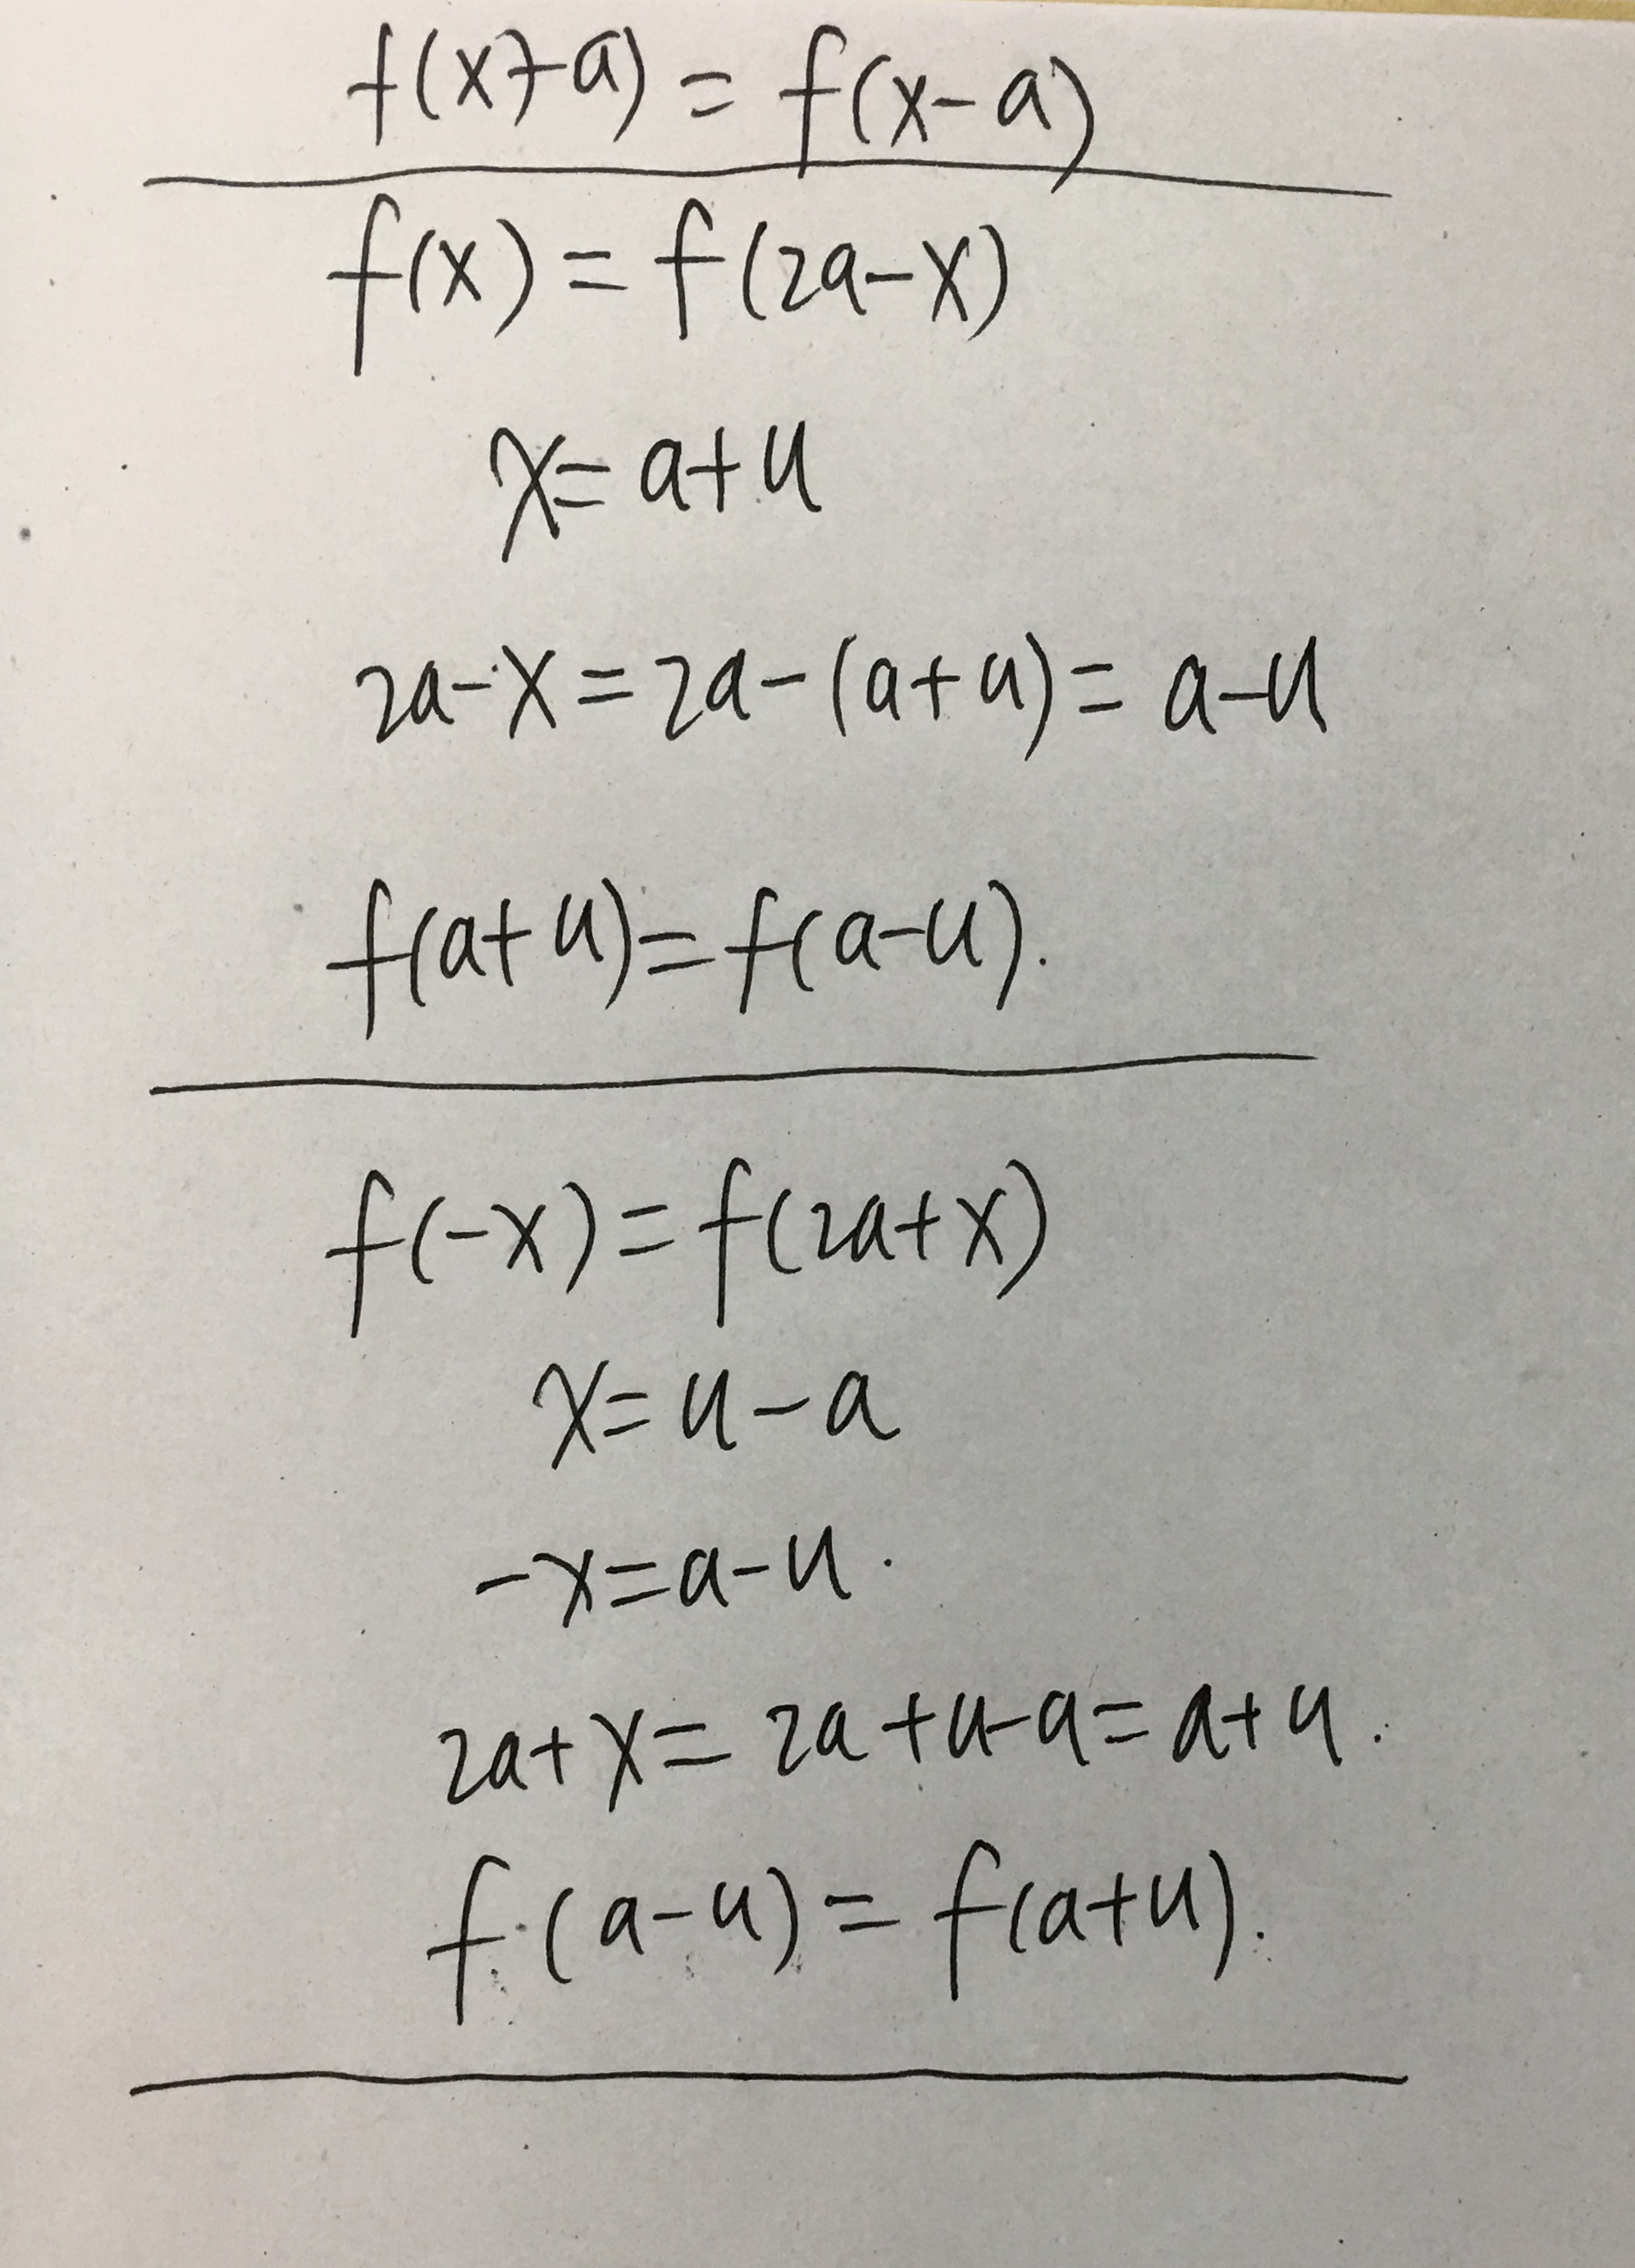 f(x+a) = f(x-a)
f(x) = f(2a-x)
x = a+u
2a-x = 2a-(a+u) = a-u
f(a+u) = f(a-u).
f(-x) = f(2a+x)
x = u-a
-x = a-u.
2a+x = 2a+u-a = a+u.
f(a-u) = f(a+u).